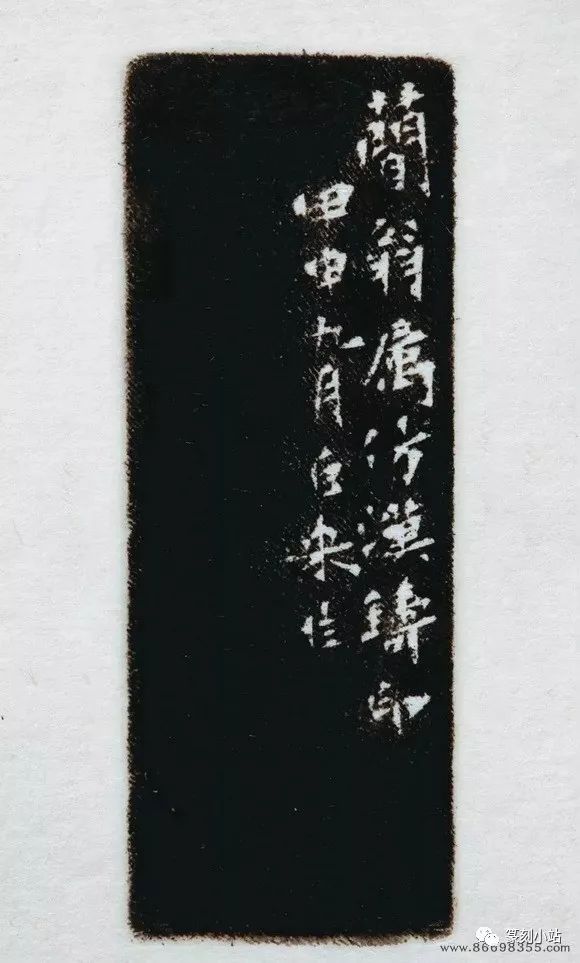 蕑翁属仿漢鑄印
甲申九月巨來作
篆刻小站
www.86698355.com